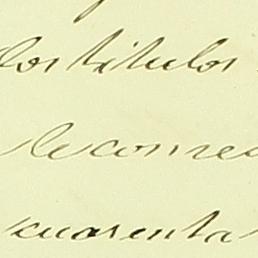 los titulos
le conree
cuarenta